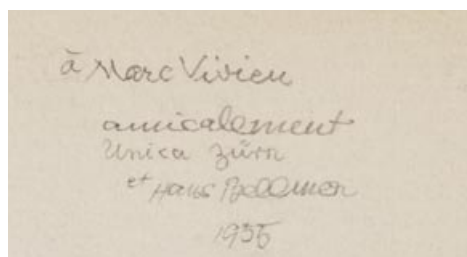 à Marc Vivien
amicalement
Unica Zürn
et Hans Bellmer
1955